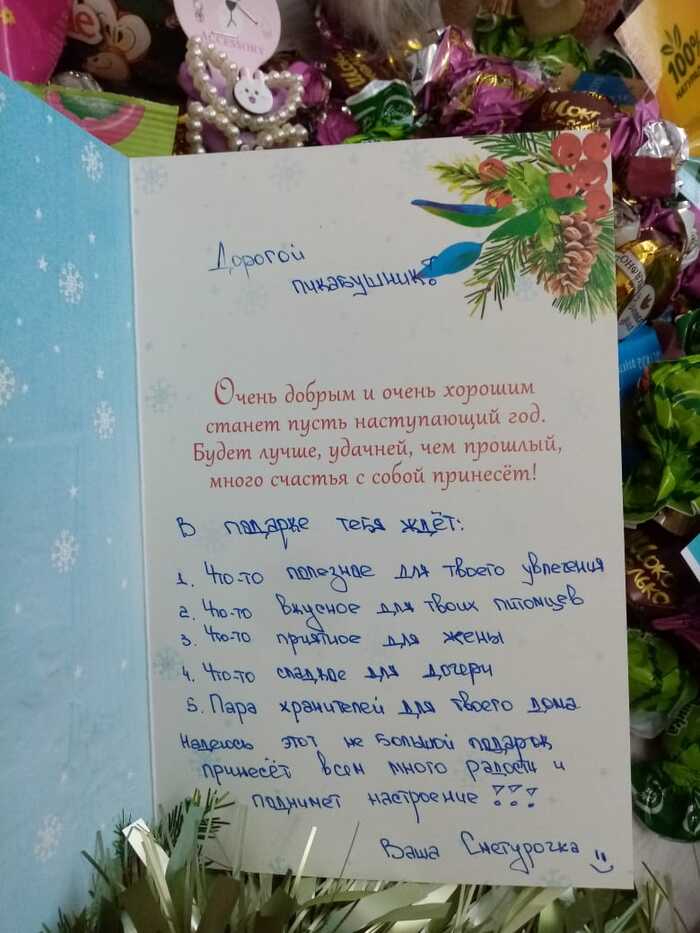 ACCESSORY
100%
Дорогой
пикабушник!
Очень добрым и очень хорошим
станет пусть наступающий год.
Будет лучше, удачней, чем прошлый,
много счастья с собой принесёт!
В подарке тебя ждёт:
1. Что-то полезное для твоего увлечения
2. Что-то вкусное для твоих питомцев
3. Что-то приятное для жены
4. Что-то сладкое для дочери
5. Пара хранителей для твоего дома
Надеюсь этот не большой подарок
принесёт всем много радости и
поднимет настроение !!!
Ваша Снегурочка